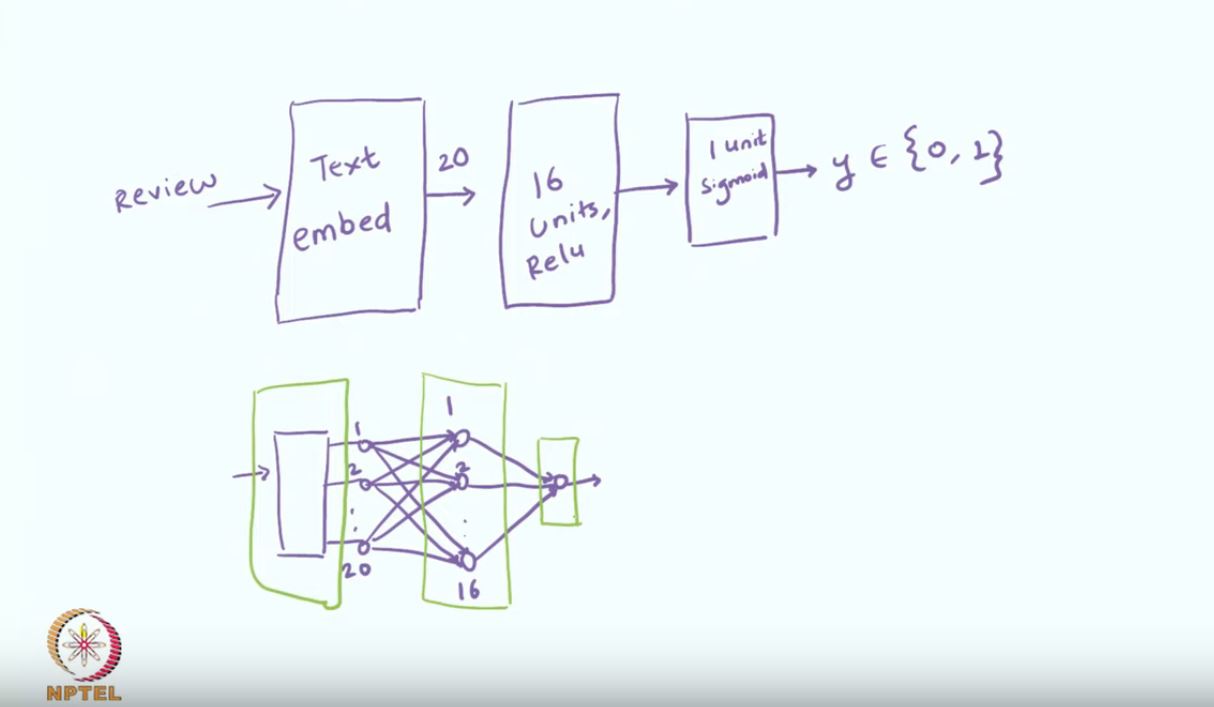 Review
Text
embed
20
16
Units,
Relu
1 unit
Sigmoid
y ∈ {0, 1}
1
2
:
20
1
2
:
16
NPTEL